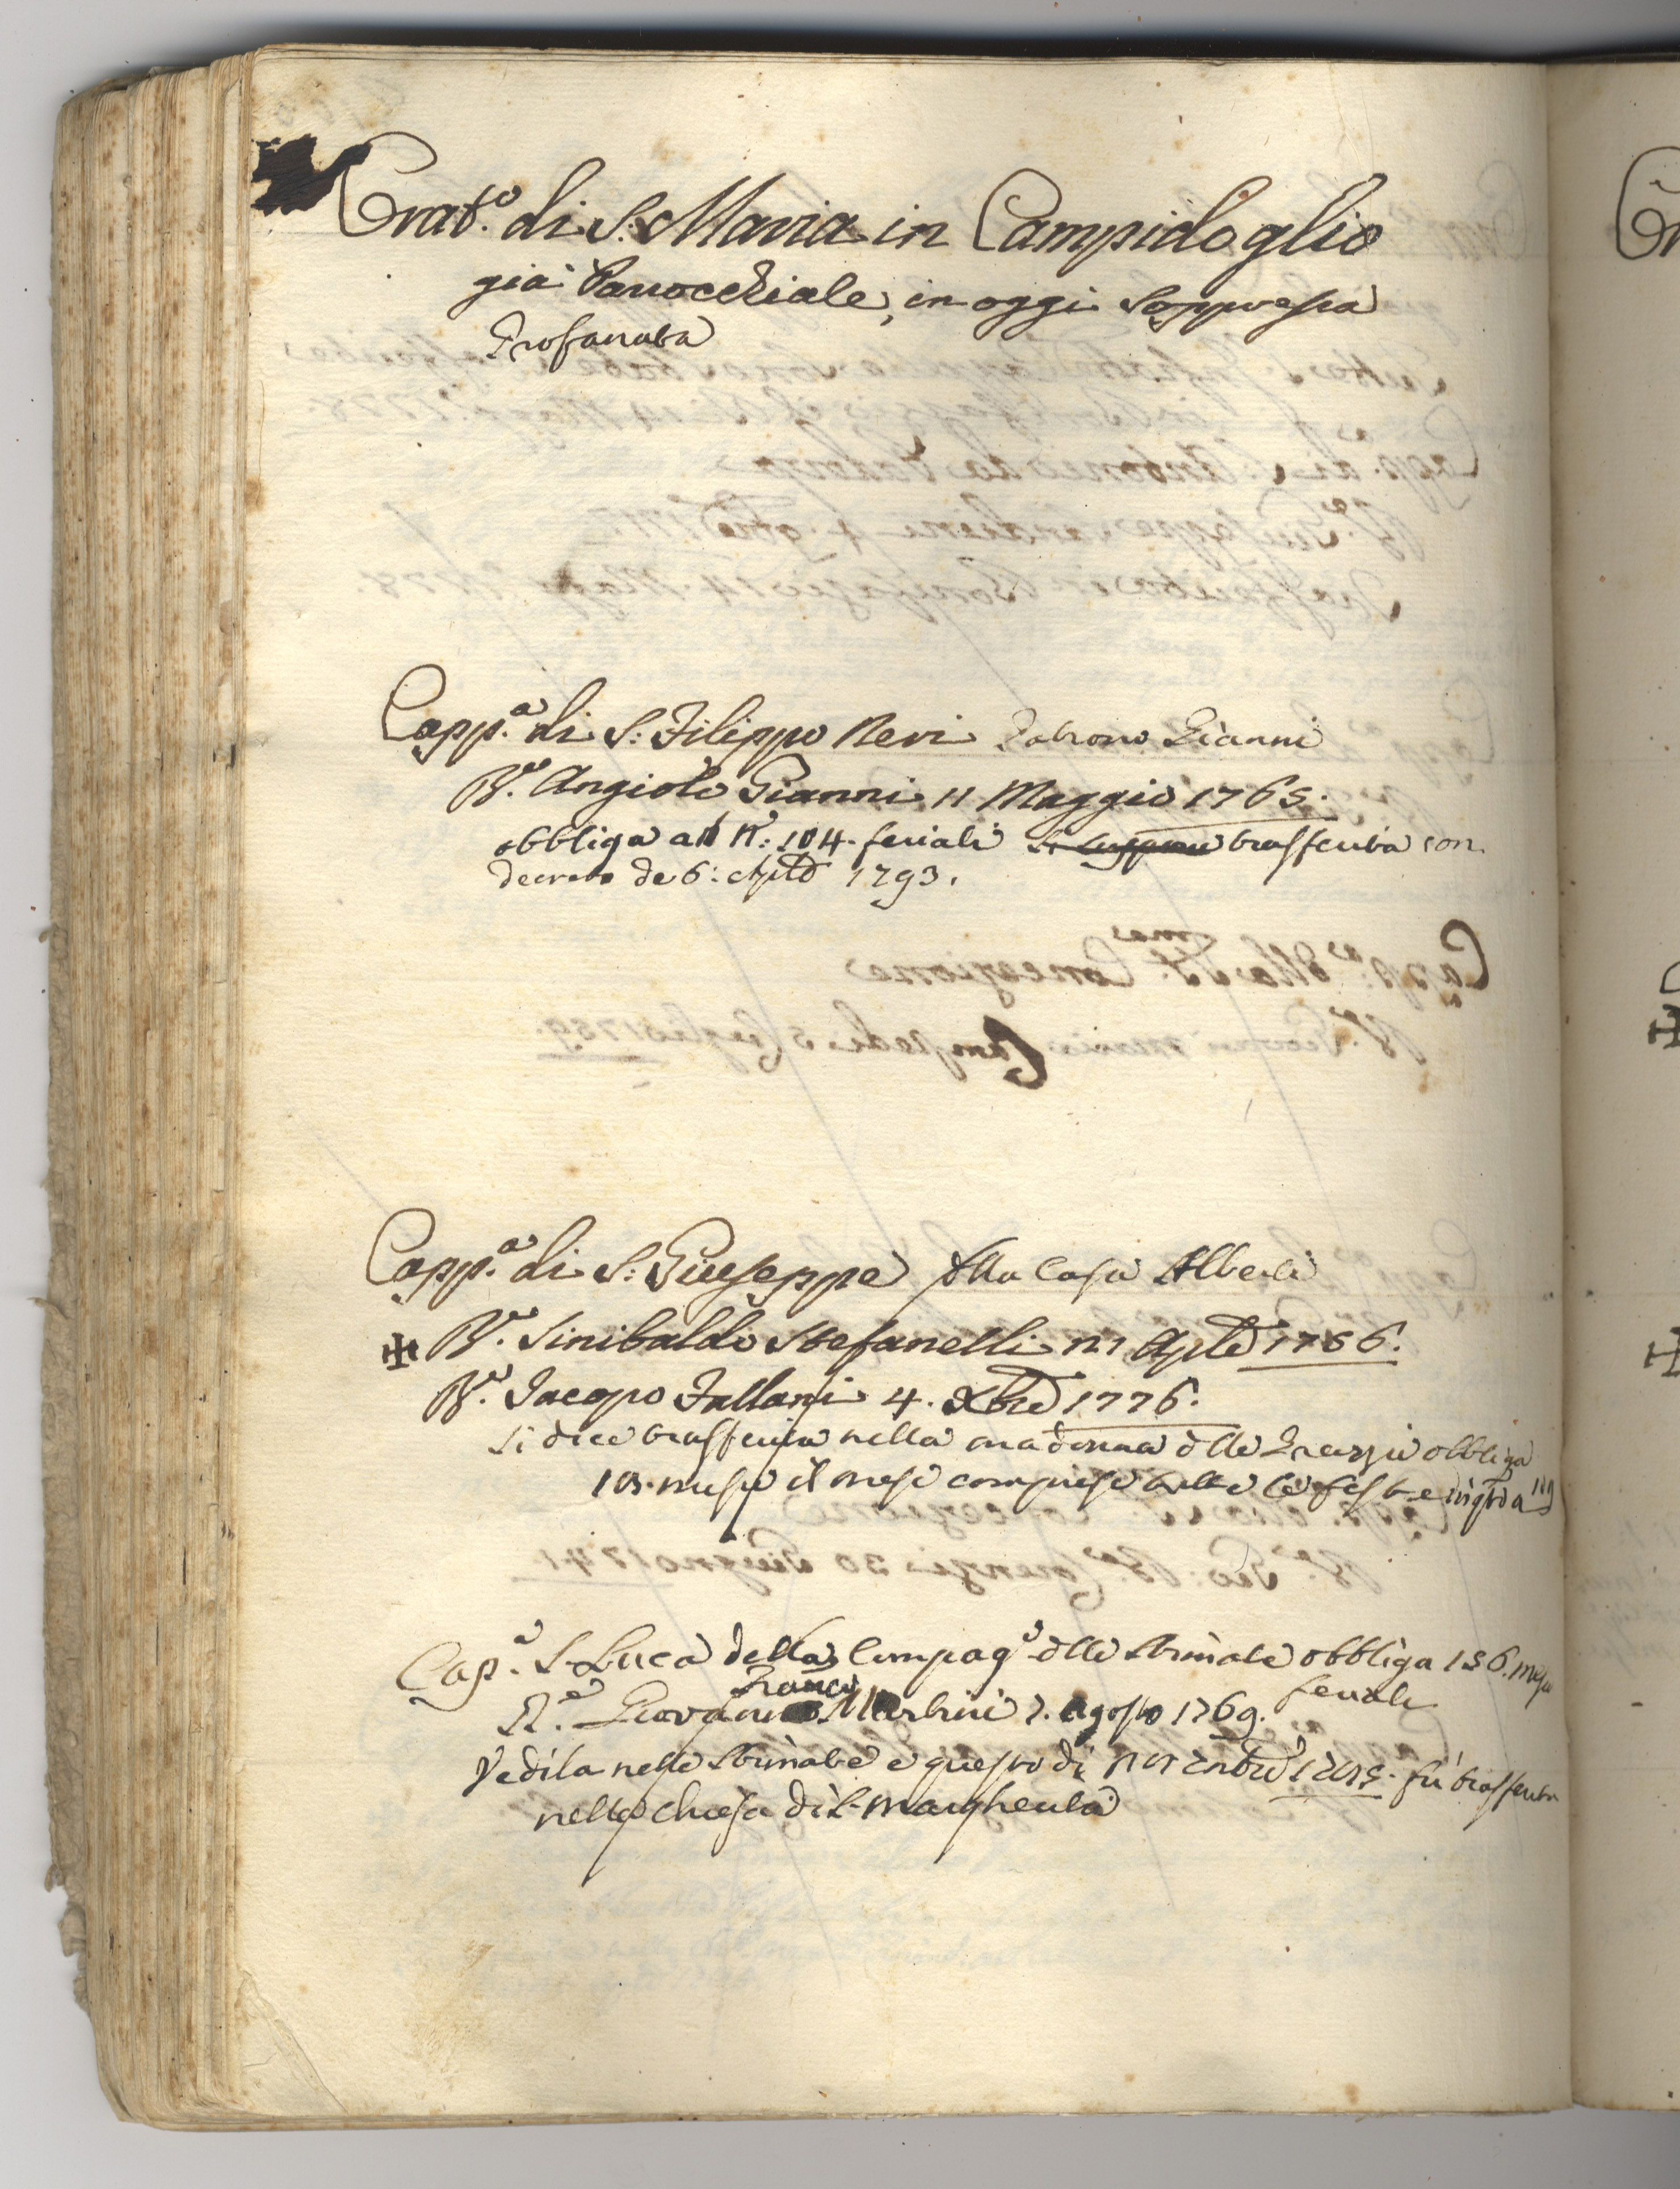 Orat.o di S. Maria in Campidoglio
già Parrocchiale, in oggi soppressa
Profanata
Capp.a di S. Filippo Neri Patrono Gianni
R.e Angiolo Gianni 11 Maggio 1765.
obbliga a N: 104. feriali trasferita con
decreto de 6: 1793.
Capp.a di S. Giuseppe della Casa Alberti
R.e Sinibaldo Stefanelli Aple 1756.
R.e Jacopo Fallani 4. Xbre 1776.
Si dice trasferita nella madonna delle Grazzie obbliga
messe il mese comprese tutte le feste
Cap.a S. Luca della Compag.a delle Stimate obbliga 156. messe
feriali
Franco
R.e Giovanni Martini 7. agosto 1769.
Vedila nelle Stimate e questo dì fù trasferita
nella chiesa di S. Margherita